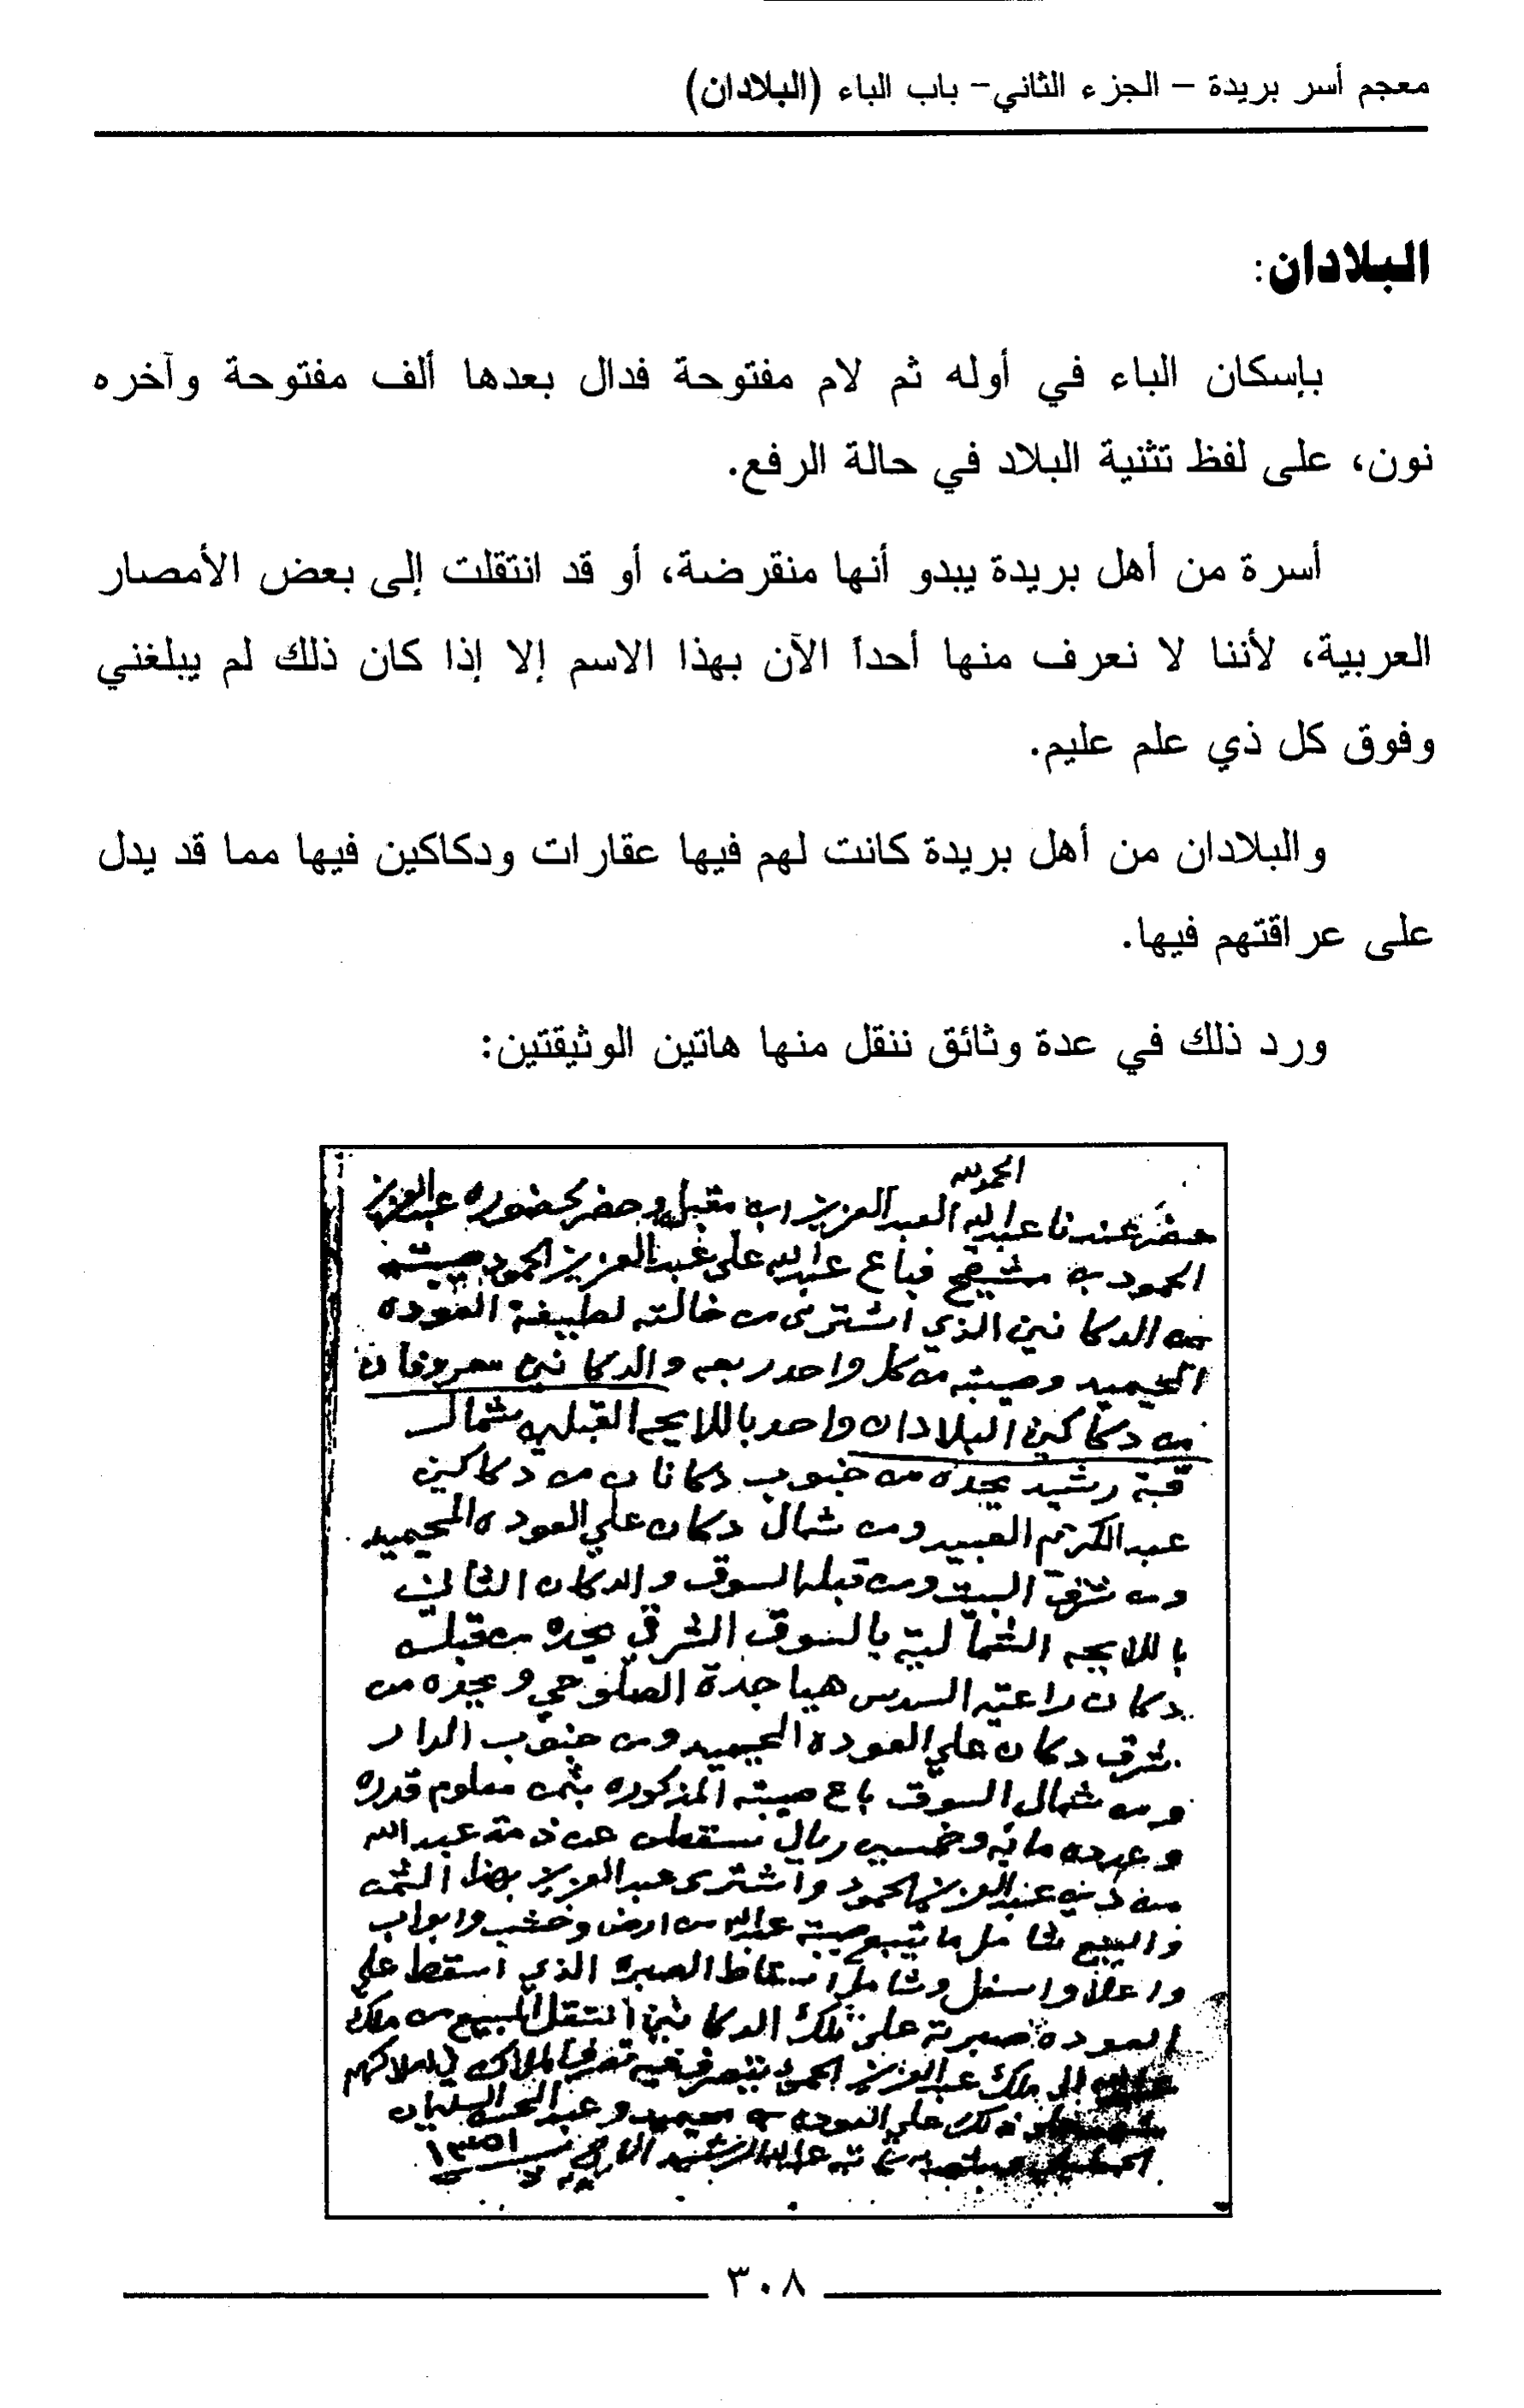 معجم أسر بريدة – الجزء الثاني– باب الباء (البلادان)
البلادان:
بإسكان الباء في أوله ثم لام مفتوحة فدال بعدها ألف مفتوحة وآخره
نون، على لفظ تثنية البلاد في حالة الرفع.
أسرة من أهل بريدة يبدو أنها منقرضة، أو قد انتقلت إلى بعض الأمصار
العربية، لأننا لا نعرف منها أحداً الآن بهذا الاسم إلا إذا كان ذلك لم يبلغني
وفوق كل ذي علم عليم.
والبلادان من أهل بريدة كانت لهم فيها عقارات ودكاكين فيها مما قد يدل
على عراقتهم فيها.
ورد ذلك في عدة وثائق ننقل منها هاتين الوثيقتين:
الحمد لله
حضر عندنا عبدالله العبدالعزيز ابن مقبل وحضر لحضوره عبدالعزيز
الحمود بن مشيقح فباع عبدالله على عبدالعزيز الحمود صيبته
من الدكانين الذي اشترى من خالته لطيفة العوده
المحيميد وصيبته من كل واحد ربعه والدكانين معروفات
من دكاكين البلادان واحد باللايحه القبليه شمال
قبة رشيد يحده من جنوب دكانان من دكاكين
عبدالكريم العبيد ومن شمال دكان علي العوده المحيميد
ومن شرق البيت ومن قبله السوق والدكان الثاني
باللايحه الشماليه بالسوق الشرقي يحده من قبله
دكان راعية السدس هيا جدة الصلوحي ويحده من
شرق دكان علي العوده المحيميد ومن جنوب الدار
ومن شمال السوق باع صيبته المذكوره بثمن معلوم قدره
وعدده مايه وخمسين ريال سقطن عن ذمة عبدالله
من دين عبدالعزيز الحمود واشترى عبدالعزيز بهذا الثمن
والبيع شامل ما يتبع صيبة عبدالله من ارض وخشب وابواب
واعلا واسفل وشامل اسقاط الصبره الذي اسقط علي
العوده صبرته على تلك الدكانين انتقل المبيع من ملك
الى ملك عبدالعزيز الحمود يتصرف فيه تصرف الملاك في املاكهم
ذلك علي العوده بن محيميد وعبدالمحسن السليمان
وشهد به كاتبه عبدالله الرشيد الفرج ١٣٥١
٣٠٨